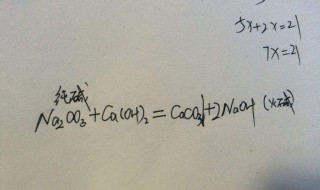 5x+2x=21
7x=21
纯碱
Na₂CO₃+Ca(OH)₂=CaCO₃↓+2NaOH (火碱)